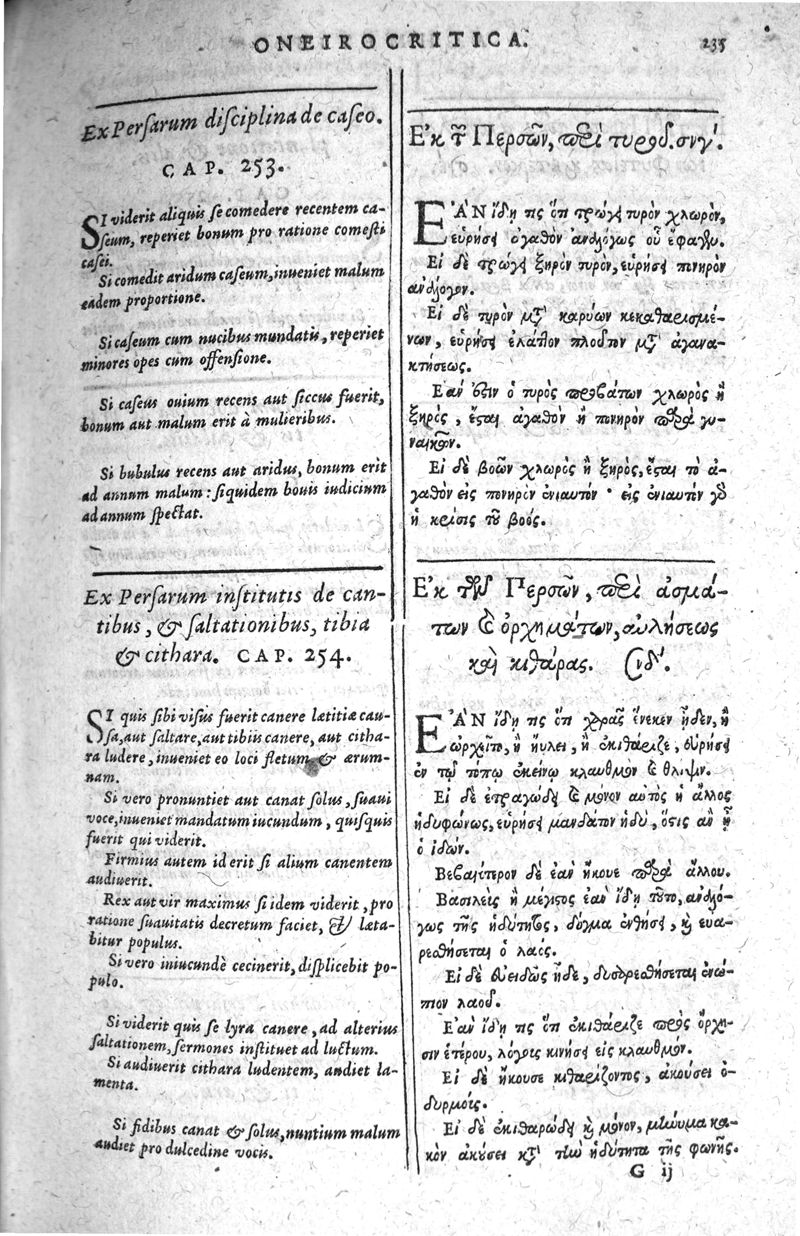 ONEIROCRITICA.
235
Ex Persarum disciplina de caseo.
CAP. 253.
SI viderit aliquis se comedere recentem ca-
seum, reperiet bonum pro ratione comesti
casei.
Si comedit aridum caseum, inueniet malum
eadem proportione.
Si caseum cum nucibus mundatis, reperiet
minores opes cum offensione.
Si caseus ouium recens aut siccus fuerit,
bonum aut malum erit à mulieribus.
Si bubulus recens aut aridus, bonum erit
ad annum malum: siquidem bouis iudicium
ad annum spectat.
Ex Persarum institutis de can-
tibus, & saltationibus, tibia
& cithara. CAP. 254.
SI quis sibi visus fuerit canere lætitiæ cau-
sa, aut saltare, aut tibiis canere, aut citha-
ra ludere, inueniet eo loci fletum & ærum-
nam.
Si vero pronuntiet aut canat solus, suaui
voce, inueniet mandatum iucundum, quisquis
fuerit qui viderit.
Firmius autem id erit si alium canentem
audiuerit.
Rex aut vir maximus si idem viderit, pro
ratione suauitatis decretum faciet, & læta-
bitur populus.
Si vero iniucundè cecinerit, displicebit po-
pulo.
Si viderit quis se lyra canere, ad alterius
saltationem, sermones instituet ad luctum.
Si audiuerit cithara ludentem, audiet la-
menta.
Si fidibus canat & solus, nuntium malum
audiet pro dulcedine vocis.
Ἐκ τῶν Περσῶν, περὶ τυροῦ. σνγ΄.
ΕΑΝ ἴδῃ τις ὅτι τρώγῃ τυρὸν χλωρὸν,
εὑρήσῃ ἀγαθὸν ἀναλόγως οὗ ἔφαγεν.
Εἰ δὲ τρώγῃ ξηρὸν τυρὸν, εὑρήσῃ πονηρὸν
ἀνάλογον.
Εἰ δὲ τυρὸν μετὰ καρύων κεκαθαρισμέ-
νων, εὑρήσῃ ἐλάττον πλοῦτον μετὰ ἀγανα-
κτήσεως.
Ἐὰν ἐστιν ὁ τυρὸς προβάτων χλωρὸς ἢ
ξηρὸς, ἔσται ἀγαθὸν ἢ πονηρὸν παρὰ γυ-
ναικῶν.
Εἰ δὲ βοῶν χλωρὸς ἢ ξηρὸς, ἔσται τὸ ἀ-
γαθὸν εἰς πονηρὸν ἐνιαυτόν· εἰς ἐνιαυτὸν γὰρ
ἡ κρίσις τοῦ βοός.
Ἐκ τῶν Περσῶν, περὶ ἀσμά-
των καὶ ὀρχημάτων, αὐλήσεως
καὶ κιθάρας. σνδ΄.
ΕΑΝ ἴδῃ τις ὅτι χαρᾶς ἕνεκεν ᾖδεν, ἢ
ἐωρχεῖτο, ἢ ηὔλει, ἢ ἐκιθάριζε, εὑρήσῃ
ἐν τῷ τόπῳ ἐκείνῳ κλαυθμὸν καὶ θλίψιν.
Εἰ δὲ ἐτραγώδῃ καὶ μόνον αὐτὸς ἢ ἄλλος
ἡδυφώνως, εὑρήσῃ μανδάτον ἡδὺ, ὅστις ἂν ᾖ
ὁ ἰδών.
Βεβαιότερον δὲ ἐὰν ἤκουε παρὰ ἄλλου.
Βασιλεὺς ἢ μέγιστος ἐὰν ἴδῃ τοῦτο, ἀναλό-
γως τῆς ἡδύτητος, δόγμα ἐνθήσῃ, καὶ εὐα-
ρεσθήσεται ὁ λαός.
Εἰ δὲ ἀειδῶς ᾖδε, δυσαρεσθήσεται ἐνώ-
πιον λαοῦ.
Ἐὰν ἴδῃ τις ὅτι ἐκιθάριζε πρὸς ὄρχη-
σιν ἑτέρου, λόγοις κινήσῃ εἰς κλαυθμόν.
Εἰ δὲ ἤκουσε κιθαρίζοντος, ἀκούσει ὀ-
δυρμοῖς.
Εἰ δὲ ἐκιθαρώδῃ καὶ μόνον, μήνυμα κα-
κὸν ἀκούσει κατὰ τὴν ἡδύτητα τῆς φωνῆς.
G ij